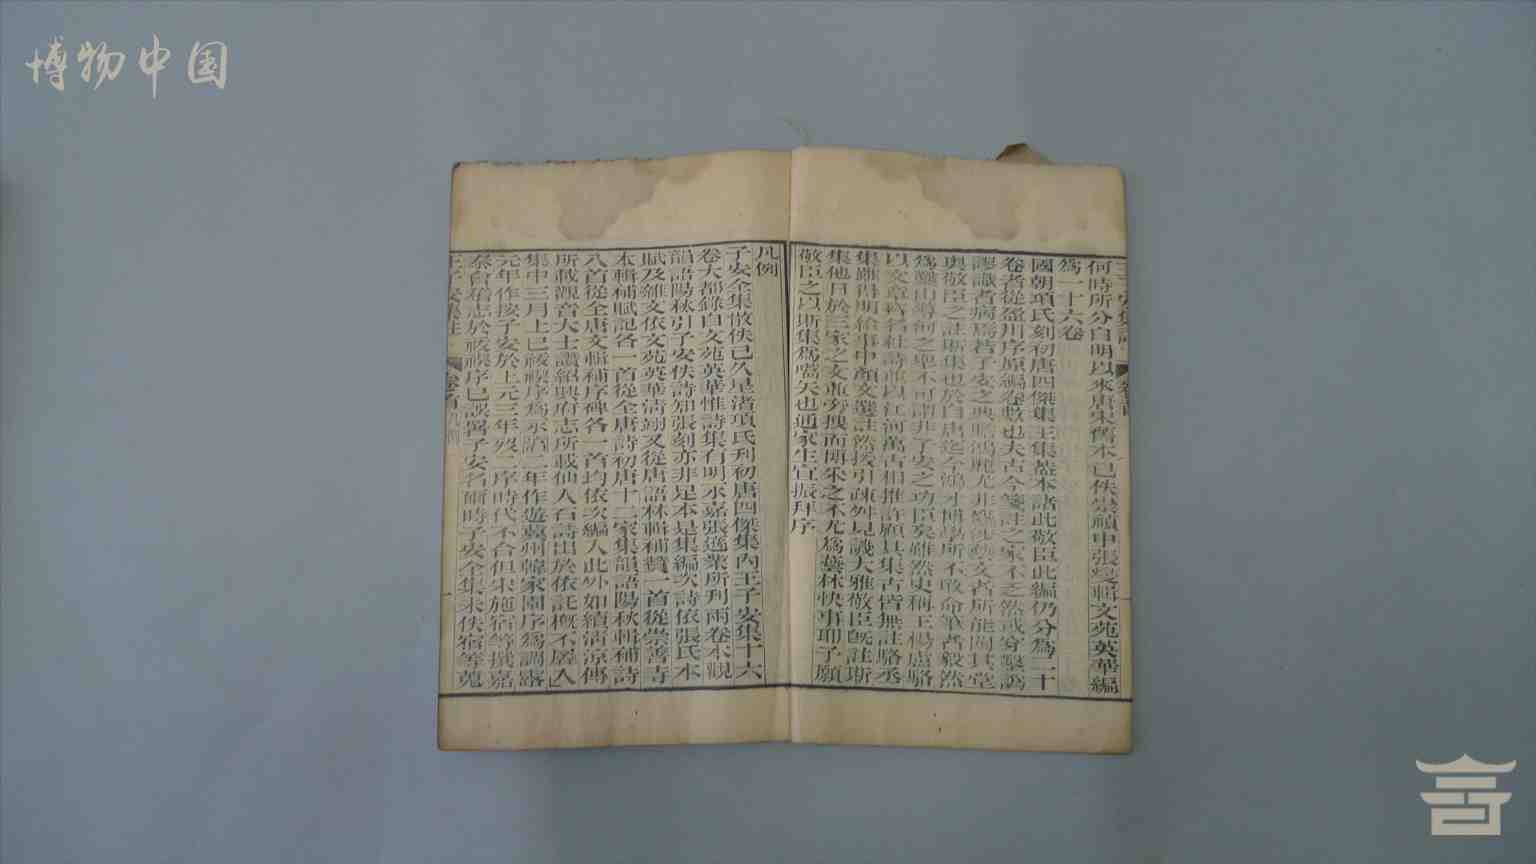 博物中国
何時所分自明以來唐宋舊本已佚崇禎中張燮輯文苑英華編
爲一十六卷
國朝項氏刻初唐四傑集王集蓋本諸此敬臣此編仍分爲二十
卷者從盈川序原編卷數也夫古今箋註之家不乏然或穿鑿譌
謬識者病焉若子安之典贍鴻麗尤非
奧敬臣之註斯集也於自唐迄今鴻才博學所不敢命筆者毅然
爲
以文章齊名杜詩並以江河萬古相推許顧其集古皆無註駱丞
集雖得明給事中顏文選註然援引疎舛見譏大雅敬臣既註斯
集他日於三家之文並旁搜而
敬臣之以斯集爲嚆矢也通家生宜振拜序
凡例
子安全集散佚已久星渚項氏刊初唐四傑集內王子安集十六
卷大都錄自文苑英華惟詩集有明永嘉張遜業所刊兩卷本觀
韻語陽秋引子安佚詩知張刻亦非足本是集編次詩依張氏本
賦及雜文依文苑英華淸翊又從唐語林輯補贊一首從崇善寺
本輯補賦記各一首從全唐詩初唐十二家集韻語陽秋輯補詩
八首從全唐文輯補序碑各一首均依次編入此外如續淸涼傳
所載觀音大士讚紹興府志所載仙人石詩出於依託槪不羼入
集中三月上巳祓禊序爲永淳二年作遊冀州韓家園序爲調露
元年作按子安於上元三年歿二序時代不合但宋施宿等撰嘉
泰會稽志於祓禊序已誤署子安名爾時子安全集未佚宿等蒐